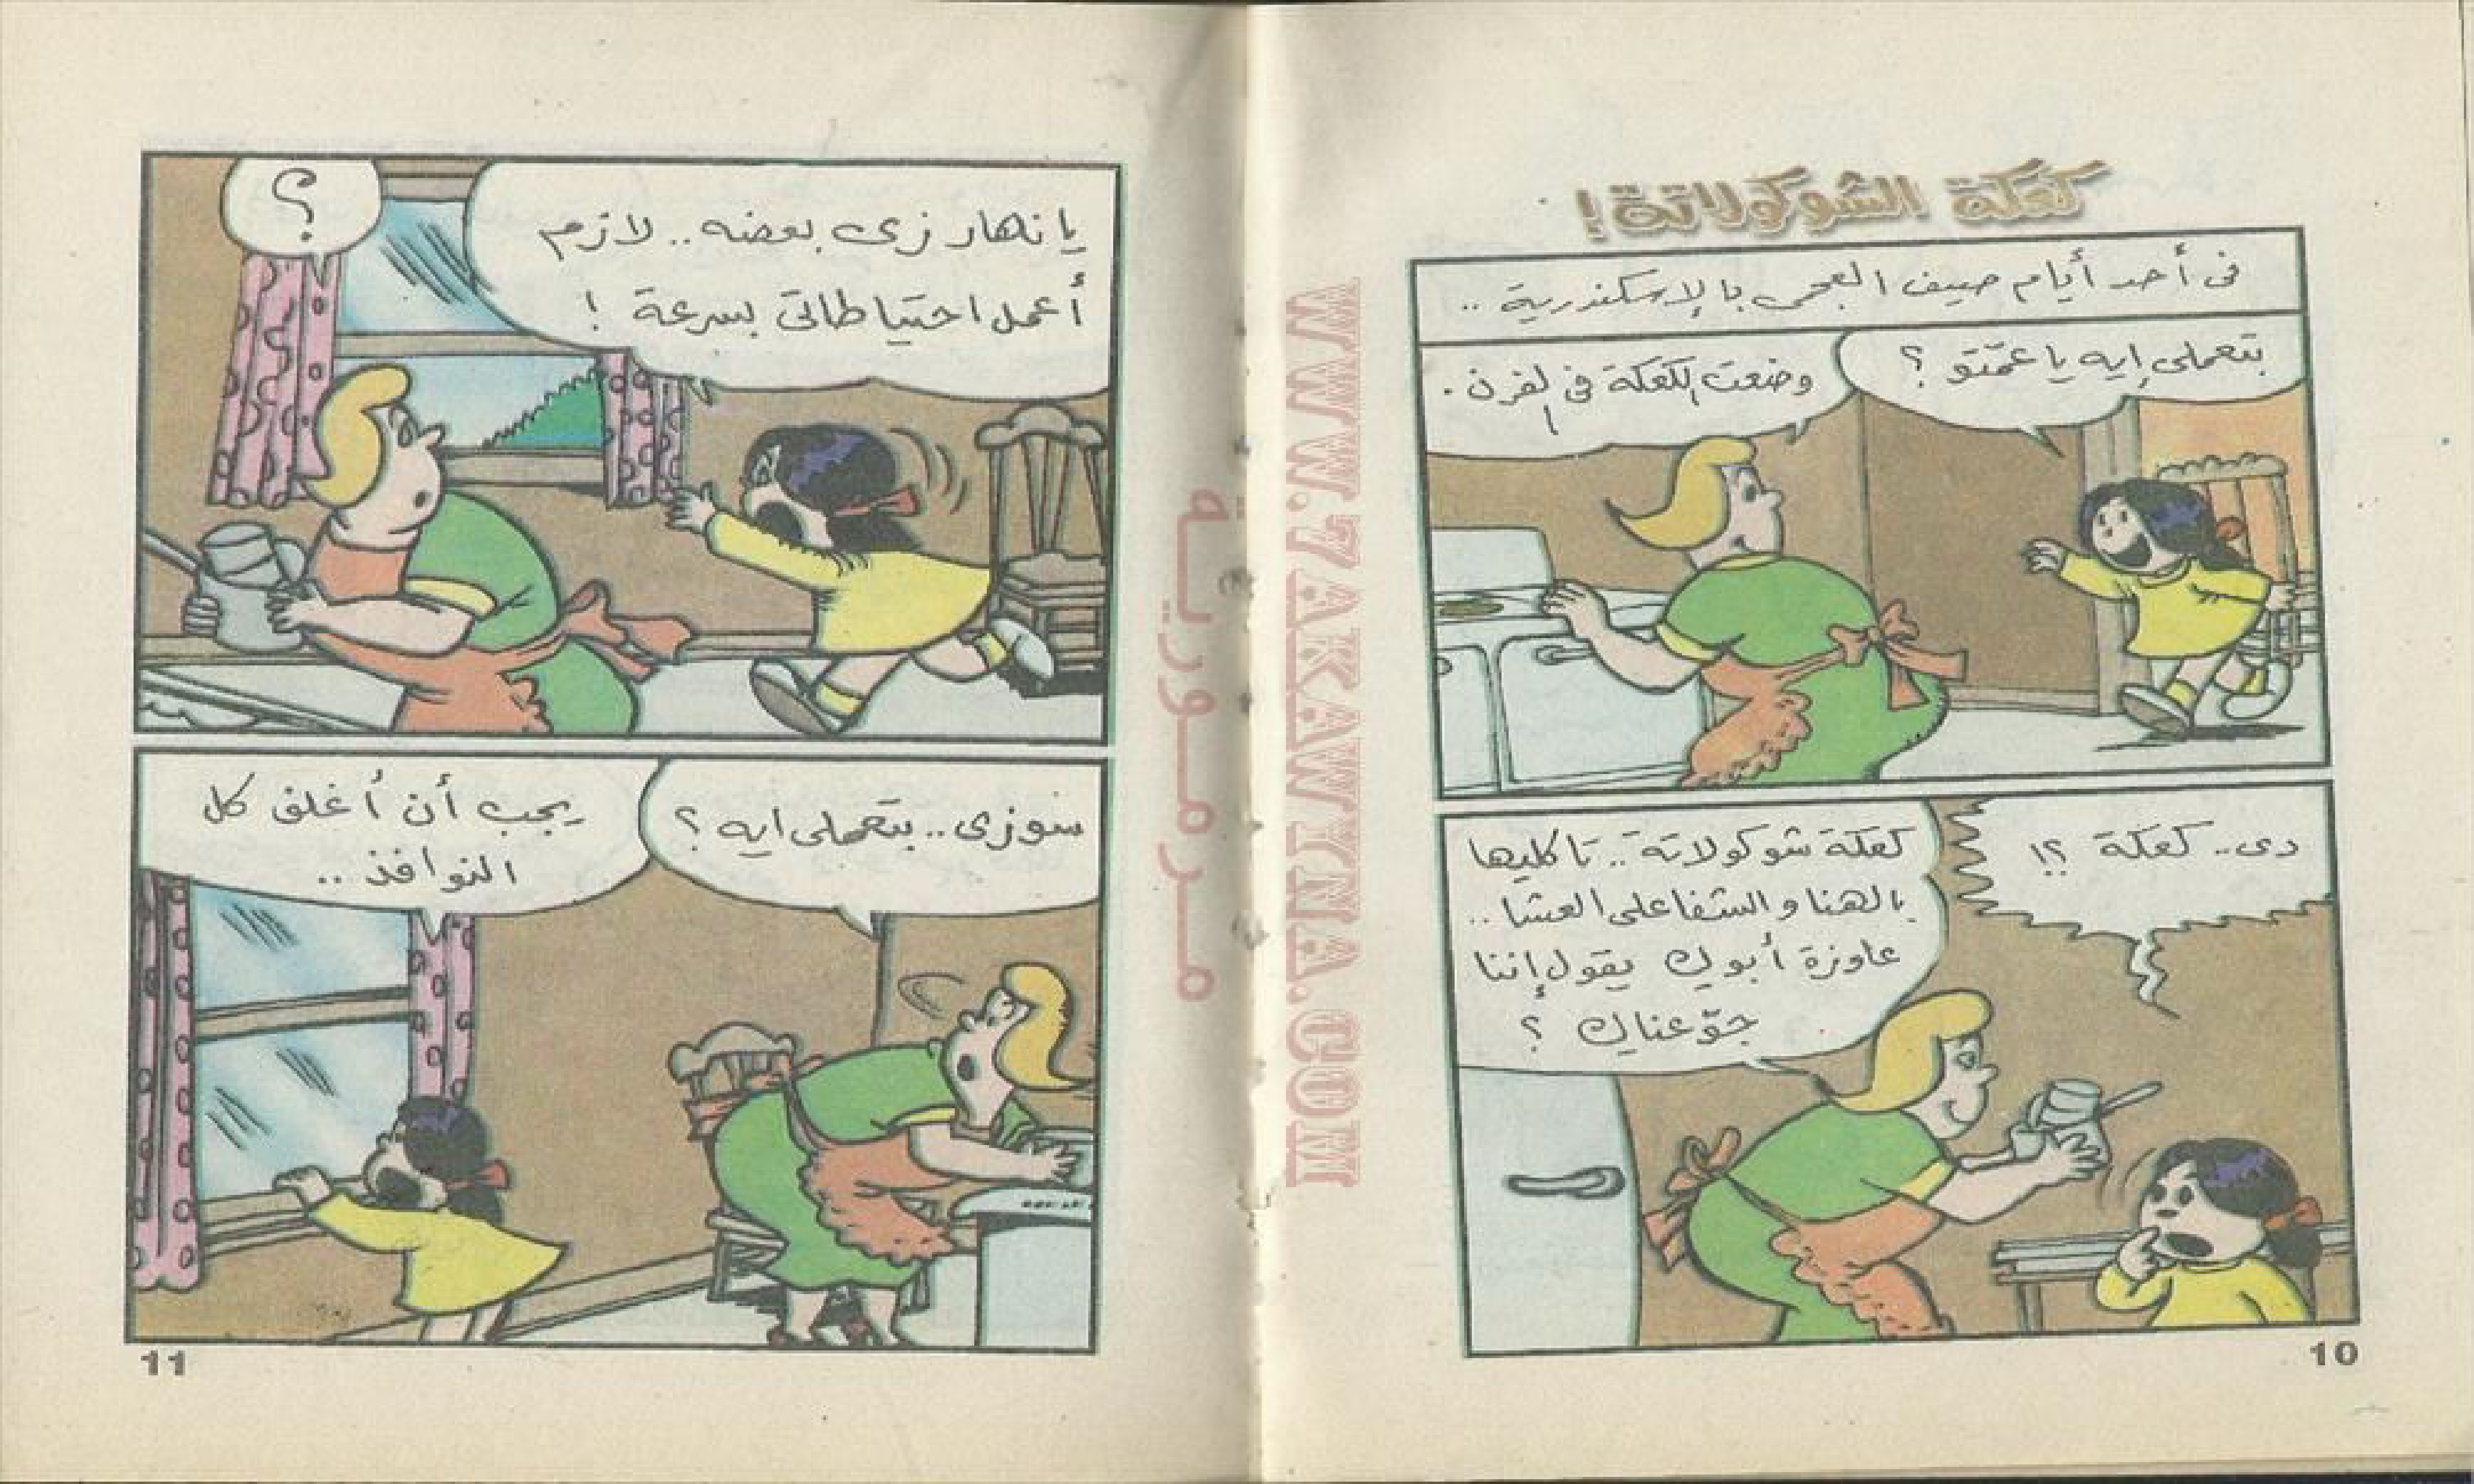 كعكة الشوكولاتة !
فى أحد أيام صيف العجمى بالإسكندرية ..
بتعملى إيه يا عمّتو ؟
وضعت الكعكة فى الفرن .
دى.. كعكة ؟!
كعكة شوكولاتة .. تاكليها
بالهنا و الشفا على العشا ..
عاوزة أبوك يقول إننا
جوّعناك ؟
10
يا نهار زى بعضه .. لازم
أعمل احتياطاتى بسرعة !
؟
سوزى .. بتعملى ايه ؟
يجب أن أُغلق كل
النوافذ ..
11
WWW.7AKAWYNA.COM